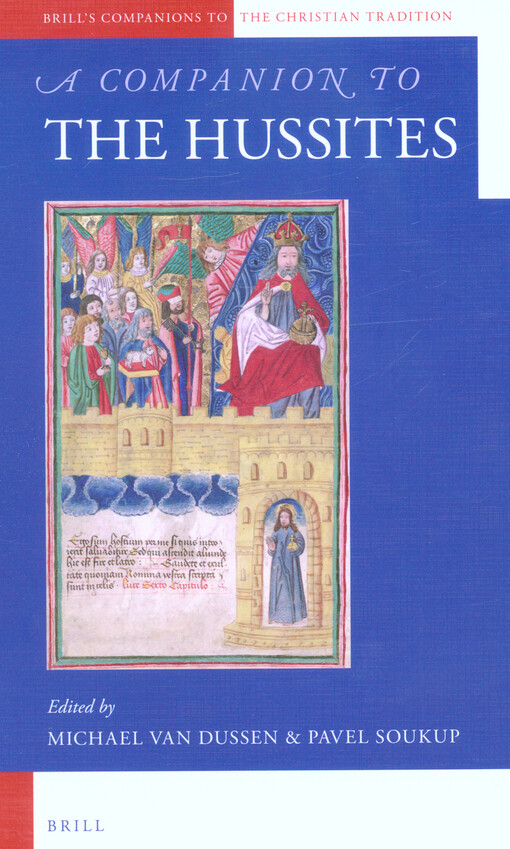 BRILL'S COMPANIONS TO THE CHRISTIAN TRADITION
A COMPANION TO
THE HUSSITES
Ego sum hostium per me si quis intro
ierit salvabitur Sed qui ascendit aliunde
hic est fur et latro : Gaudete et exul
tate quoniam nomina vestra scripta
sunt in celis luce Sexto Capitulo
Edited by
MICHAEL VAN DUSSEN & PAVEL SOUKUP
BRILL